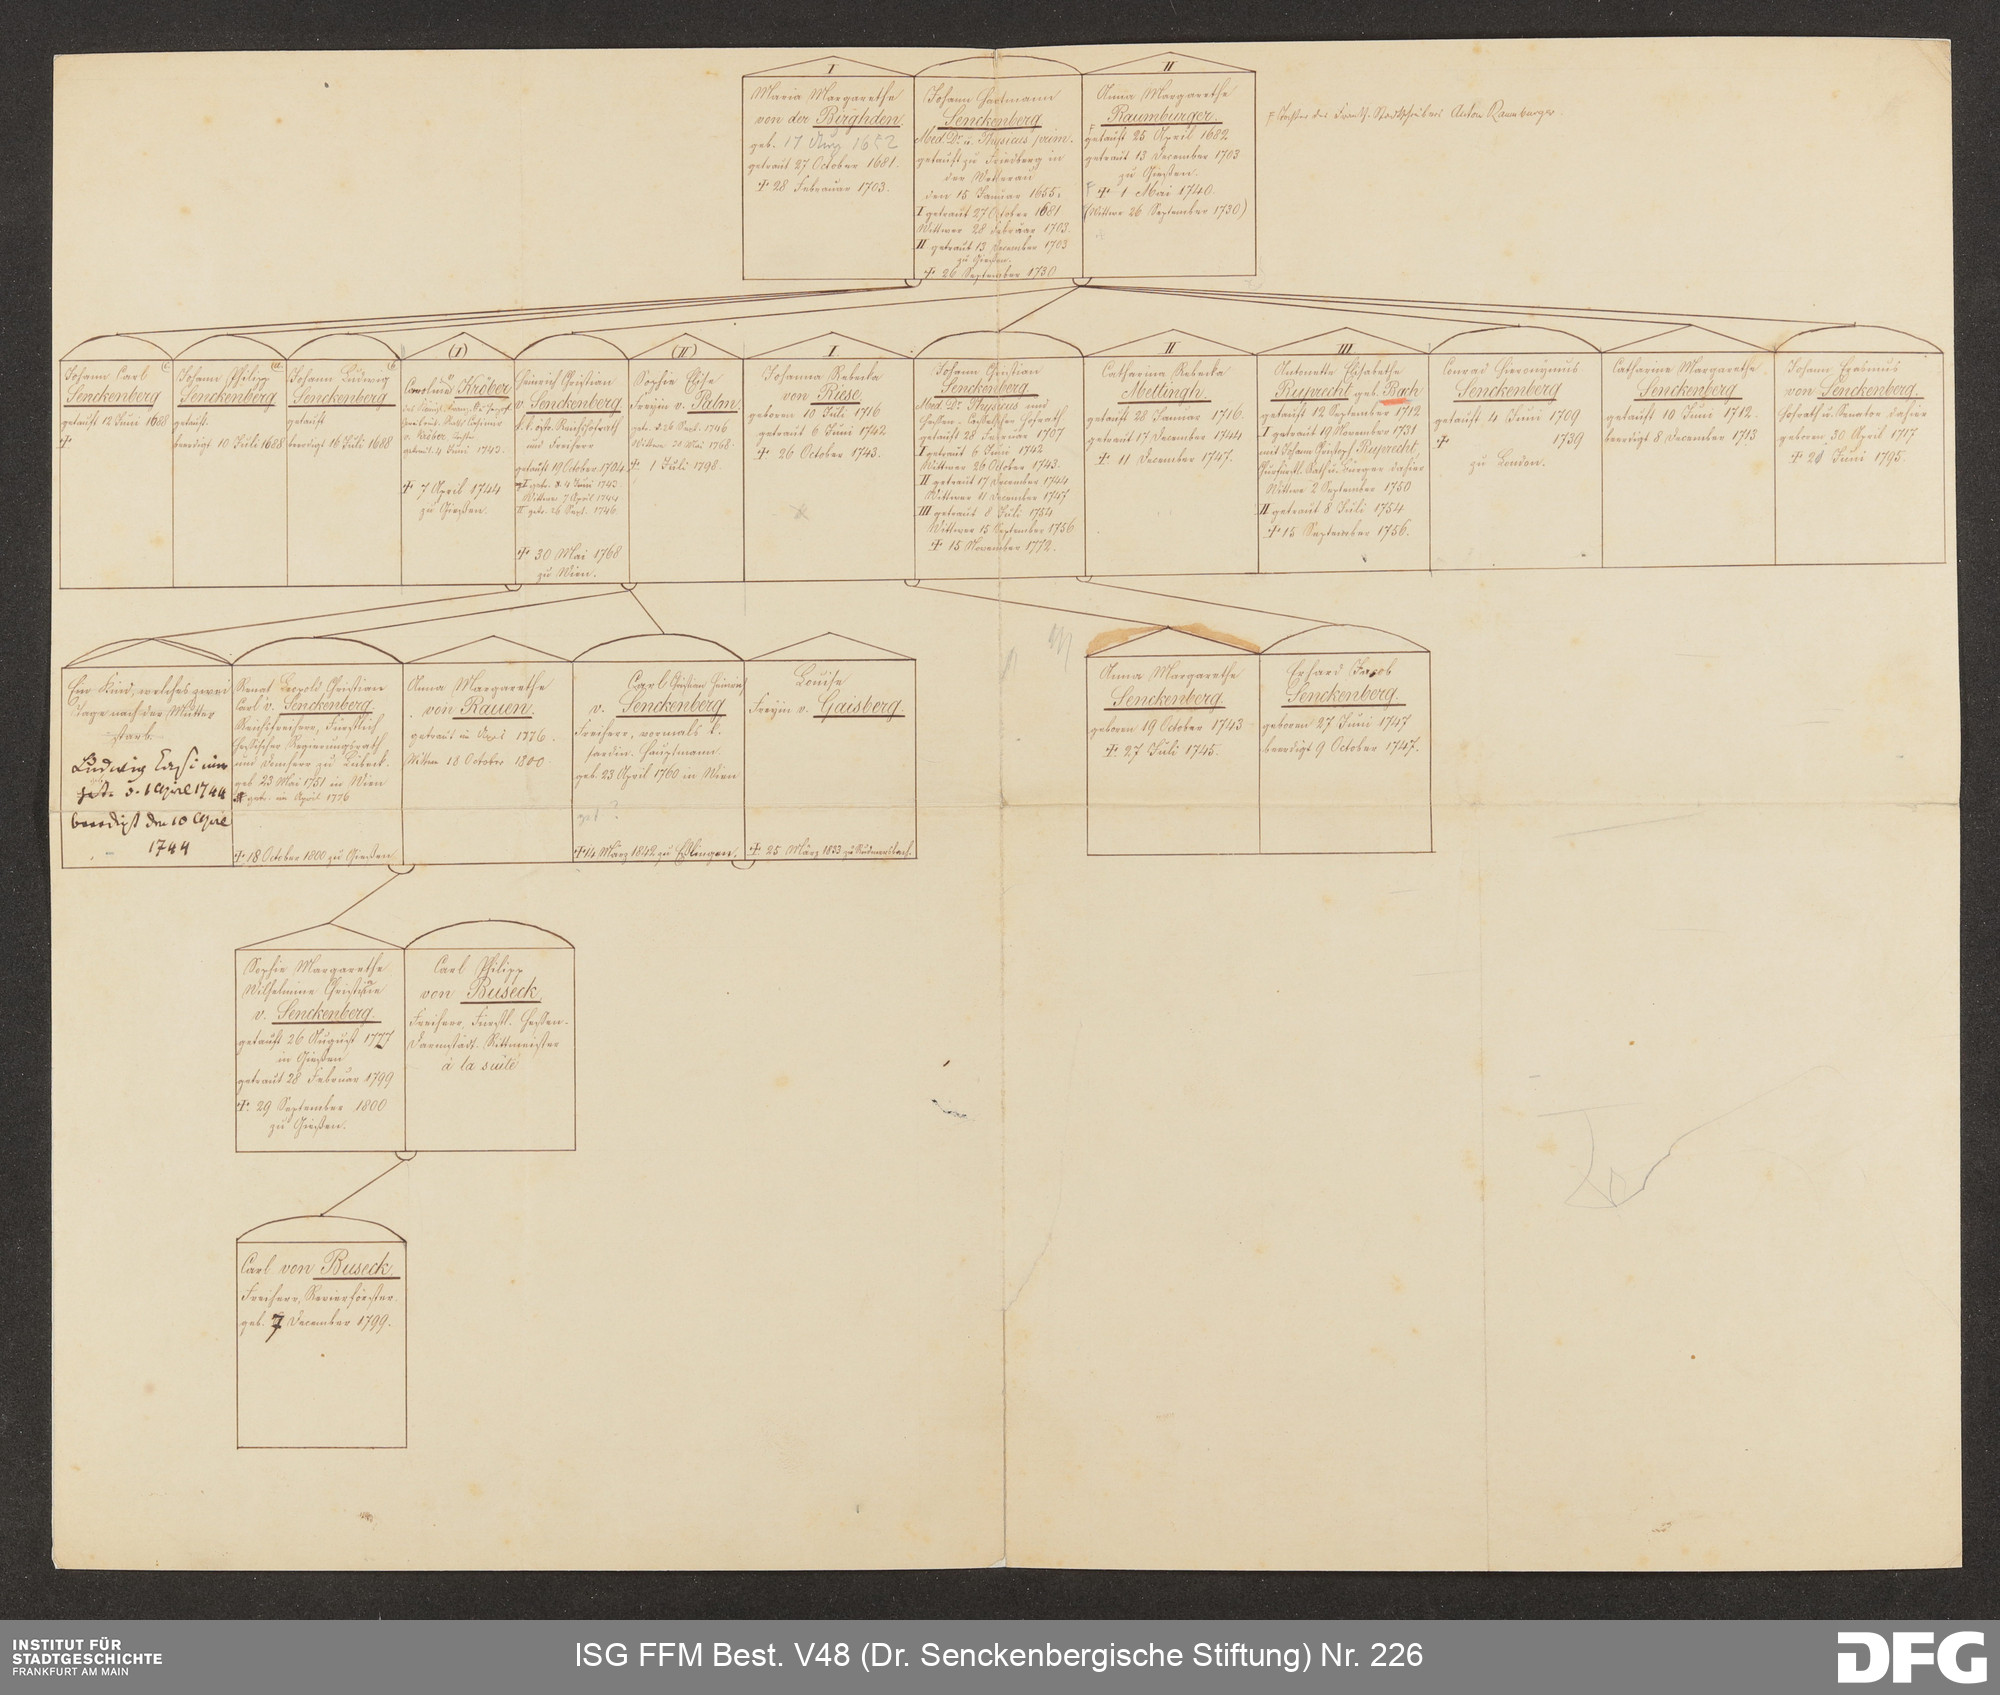 I
Maria Margarethe
von der Birghden.
geb. 17 Aug 1652
getraut 27 October 1681.
† 28 Februar 1703.
Johann Hartmann
Senckenberg
Med. Dr. u. Physicus prim.
getauft zu Friedberg in
der Wetterau
den 15 Januar 1655.
I getraut 27 October 1681
Wittwer 28 Februar 1703.
II getraut 13 December 1703
zu Gießen.
† 26 September 1730
II
Anna Margarethe
Raumburger.
getauft 25 April 1682
getraut 13 December 1703
zu Gießen.
† 1 Mai 1740.
(Wittwe 26 September 1730)
Tochter des Frankf. Stadtschreibers Anton Raumburger.
Johann Carl
Senckenberg
getauft 12 Juni 1688
†
Johann Philipp
Senckenberg
getauft
beerdigt 10 Juli 1685
Johann Ludwig
Senckenberg
getauft
beerdigt 16 Juli 1688
(I)
Caroline v. Kröber
v. Kröber Tochter
getraut 4 Juni 1743.
† 7 April 1744
zu Gießen.
Heinrich Christian
v. Senckenberg
k. k. östr. Reichshofrath
und Freiherr
getauft 19 October 1704
I getr. d. 4 Juni 1743
Wittwer 7 April 1744
II getr. 26 Sept. 1746.
† 30 Mai 1768
zu Wien.
(II)
Sophie Elise
Freyin v. Palm.
getr. d. 26 Sept. 1746
Wittwe 30 Mai 1768.
† 1 Juli 1798.
I
Johanna Rebecka
von Riese.
geboren 10 Juli 1716
getraut 6 Juni 1742
† 26 October 1743.
Johann Christian
Senckenberg.
Med. Dr. Physicus und
Hessen-Casselscher Hofrath
getauft 28 Februar 1707
I getraut 6 Juni 1742
Wittwer 26 October 1743.
II getraut 17 December 1744
Wittwer 11 December 1747
III getraut 8 Juli 1754
Wittwer 15 September 1756
† 15 November 1772.
II
Catharina Rebecka
Mettingh.
getauft 28 Januar 1716.
getraut 17 December 1744
† 11 December 1747.
III
Antonetta Elisabethe
Ruprecht geb. Bach
getauft 12 September 1712
I getraut 19 November 1731
mit Johann Christoph Ruprecht,
Churfürstl. Rath u. Bürger dahier
Wittwe 2 September 1750
II getraut 8 Juli 1754
† 15 September 1756.
Conrad Hieronymus
Senckenberg
getauft 4 Juni 1709
† 1739
zu London.
Catharine Margarethe
Senckenberg
getauft 10 Juni 1712.
beerdigt 8 December 1713
Johann Erasmus
von Senckenberg.
Hofrath u. Senator dahier
geboren 30 April 1717
† 21 Juni 1795.
Ein Kind, welches zwei
Tage nach der Mutter
starb.
Ludwig Casimir
get. d. 1 April 1744
beerdigt den 10 April
1744
Renat Leopold Christian
Carl v. Senckenberg.
Reichsfreiherr, Fürstlich
Hessischer Regierungsrath
und Domherr zu Lübeck.
geb. 23 Mai 1751 in Wien
getr. im April 1776
† 18 October 1800 zu Gießen.
Anna Margarethe
von Rauen.
getraut im April 1776.
Wittwe 18 October 1800.
Carl Christian Heinrich
v. Senckenberg
Freiherr, vormals k.
sardin. Hauptmann.
geb. 23 April 1760 in Wien
get ?
† 14 März 1842 zu Eßlingen.
Louise
Freyin v. Gaisberg.
† 25 März 1833 zu Rudmersbach.
Anna Margarethe
Senckenberg.
geboren 19 October 1743
† 27 Juli 1745.
Erhard Jacob
Senckenberg.
geboren 27 Juni 1747
beerdigt 9 October 1747.
Sophie Margarethe
Wilhelmine Christiane
v. Senckenberg.
getauft 26 August 1777
in Gießen
getraut 28 Februar 1799
† 29 September 1800
zu Gießen.
Carl Philipp
von Buseck
Freiherr, Fürstl. Hessen-
Darmstädt. Rittmeister
à la suite
Carl von Buseck.
Freiherr, Revierförster.
geb. 7 December 1799.
INSTITUT FÜR
STADTGESCHICHTE
FRANKFURT AM MAIN
ISG FFM Best. V48 (Dr. Senckenbergische Stiftung) Nr. 226
DFG